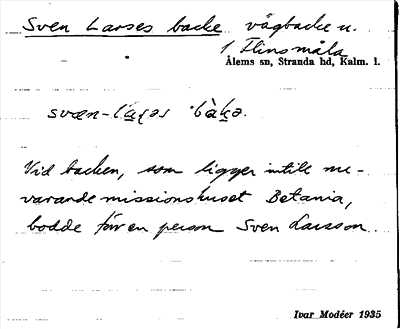 Sven Larses backe vägbacke u.
/ Flinsmåla
Ålems sn, Stranda hd, Kalm. l.
svæn-
Vid backen, som ligger intill nu-
varande missionshuset Betania,
bodde förr en person Sven Larsson.
Ivar Modéer 1935